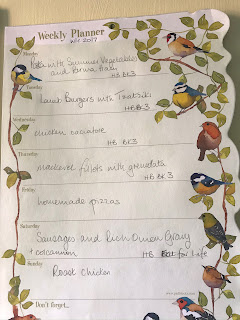 Weekly Planner
Monday
with Summer Vegetables
and Parma Ham
HB BK3
Tuesday
Lamb Burgers with Tzatziki
HB BK3
Wednesday
chicken cacciatore
HB BK3
Thursday
mackerel fillets with gremolata
HB BK3
Friday
homemade pizzas
Saturday
Sausages and Rich Onion Gravy
+ colcannon
HB Eat for Life
Sunday
Roast Chicken
Don't forget...